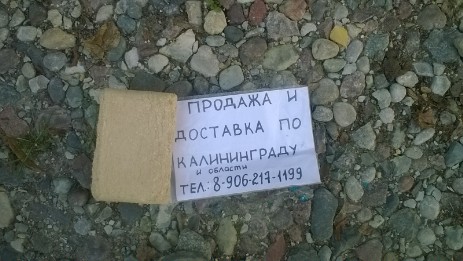 ПРОДАЖА И
ДОСТАВКА ПО
КАЛИНИНГРАДУ
И ОБЛАСТИ
ТЕЛ.: 8-906-217-1199